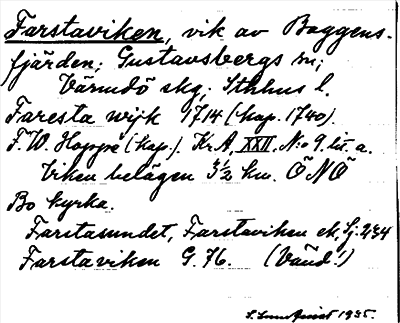 Farstaviken, vik av Baggens-
fjärden; Gustavsbergs sn;
Värmdö skg; Sthlms l.
Faresta wijk 1714 (kop. 1740).
F. W. Hoppe (kop.). Kr. A. XXII, N:o 9. lit. a.
Viken belägen 3½ km. ÖNÖ
Bo kyrka.
Farstasundet, Farstaviken ek, Sj. 234
Farstaviken G. 76. (Vänd!)
1935.